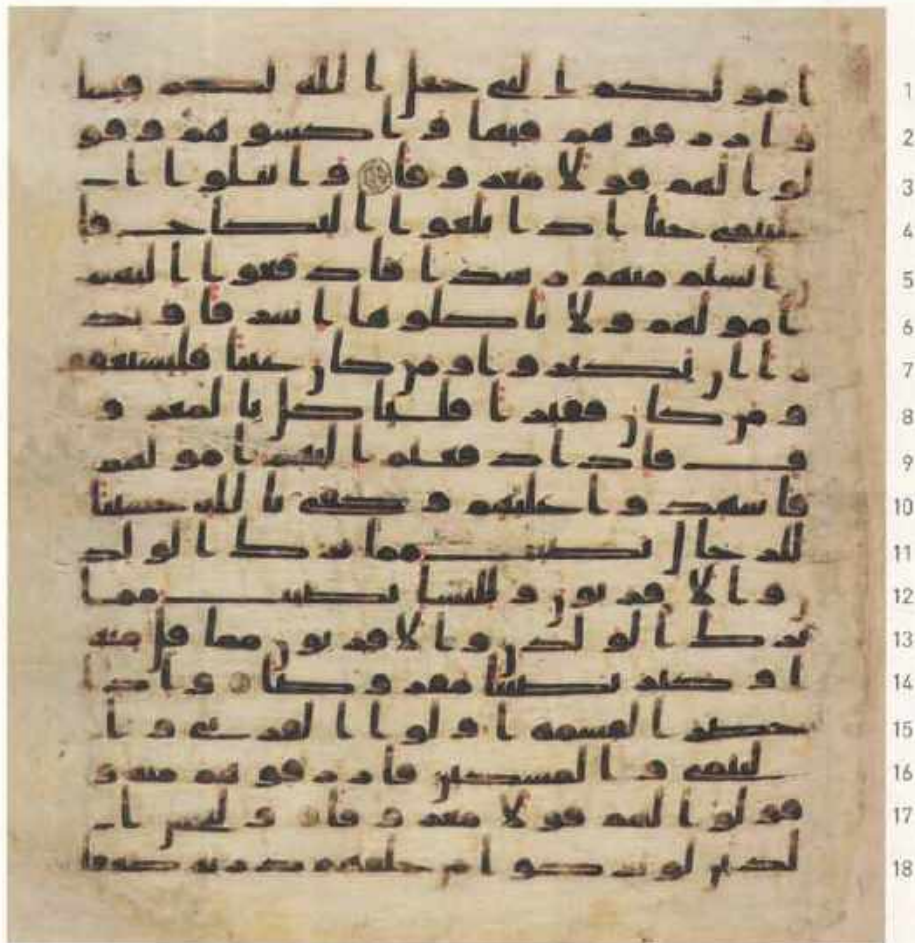 امولكم التي جعل الله لكم قيما 1
وارزقوهم فيها واكسوهم وقو 2
لوا لهم قولا معروفا وابتلوا ا 3
ليتمى حتى اذا بلغوا النكاح فا 4
ن انستم منهم رشدا فادفعوا اليهم 5
امولهم ولا تاكلوها اسرافا وبد 6
ارا ان يكبروا ومن كان غنيا فليستعفف 7
ومن كان فقيرا فلياكل بالمعر و 8
ف فاذا دفعتم اليهم امولهم 9
فاشهدوا عليهم وكفى بالله حسيبا 10
للرجال نصيب مما ترك الولد 11
ن والاقربون وللنسا نصيب مما 12
ترك الولدن والاقربون مما قل منه 13
او كثر نصيبا مفروضا واذا 14
حضر القسمة اولوا القربى وا 15
ليتمى والمسكين فارزقوهم منه و 16
قولوا لهم قولا معروفا وليخش ا 17
لذين لو تركوا من خلفهم ذرية ضعفا 18